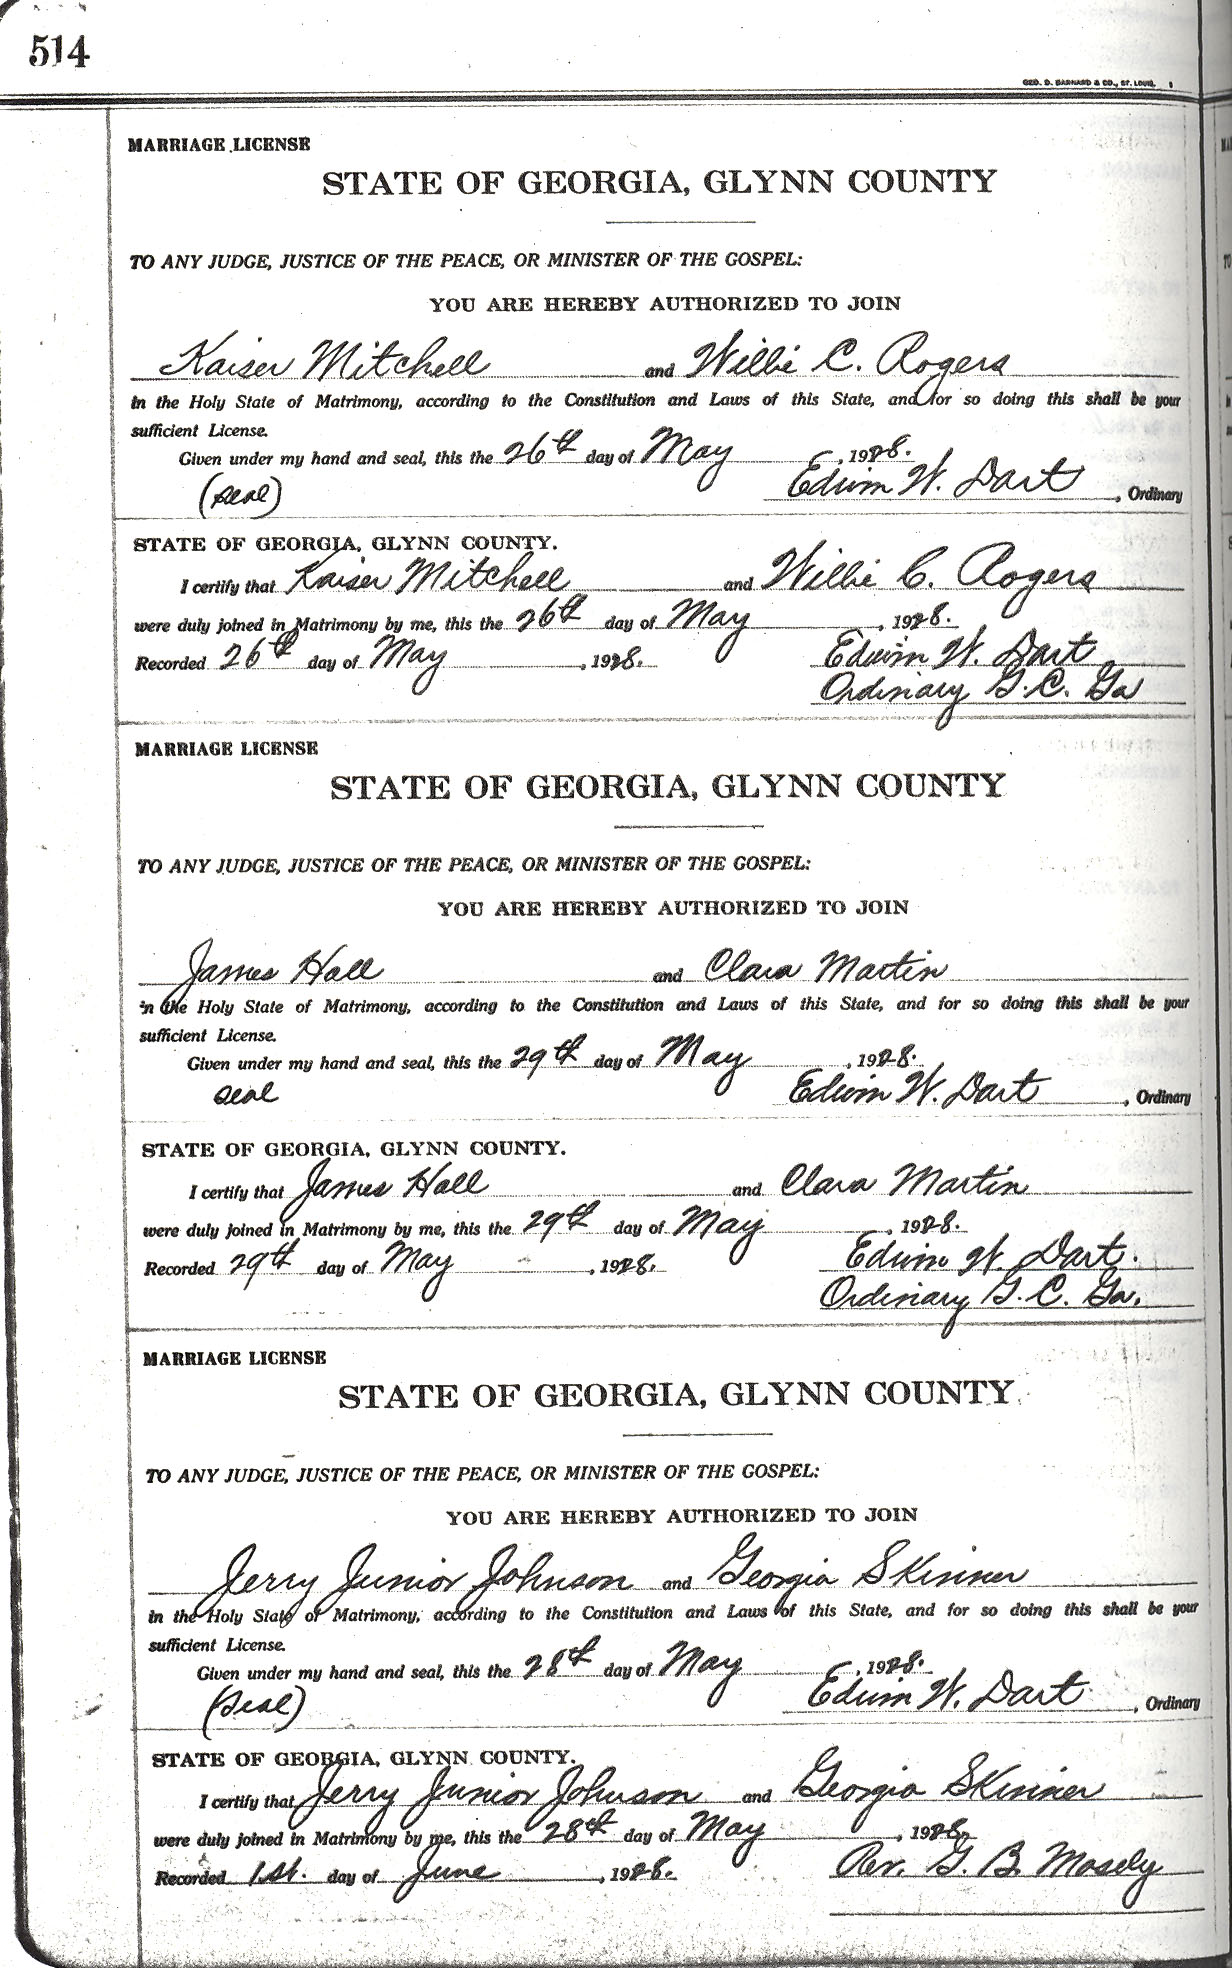 514
GEO. D. BARNARD & CO., ST. LOUIS.
MARRIAGE LICENSE
STATE OF GEORGIA, GLYNN COUNTY
TO ANY JUDGE, JUSTICE OF THE PEACE, OR MINISTER OF THE GOSPEL:
YOU ARE HEREBY AUTHORIZED TO JOIN
Kaiser Mitchell and Willie C. Rogers
in the Holy State of Matrimony, according to the Constitution and Laws of this State, and for so doing this shall be your
sufficient License.
Given under my hand and seal, this the 26th day of May, 1928.
(seal) Edwin W. Dart, Ordinary
STATE OF GEORGIA, GLYNN COUNTY.
I certify that Kaiser Mitchell and Willie C. Rogers
were duly joined in Matrimony by me, this the 26th day of May, 1928.
Recorded 26th day of May, 1928. Edwin W. Dart
Ordinary G.C. Ga
MARRIAGE LICENSE
STATE OF GEORGIA, GLYNN COUNTY
TO ANY JUDGE, JUSTICE OF THE PEACE, OR MINISTER OF THE GOSPEL:
YOU ARE HEREBY AUTHORIZED TO JOIN
James Hall and Clara Martin
in the Holy State of Matrimony, according to the Constitution and Laws of this State, and for so doing this shall be your
sufficient License.
Given under my hand and seal, this the 29th day of May, 1928.
seal Edwin W. Dart, Ordinary
STATE OF GEORGIA, GLYNN COUNTY.
I certify that James Hall and Clara Martin
were duly joined in Matrimony by me, this the 29th day of May, 1928.
Recorded 29th day of May, 1928. Edwin W. Dart.
Ordinary G.C. Ga.
MARRIAGE LICENSE
STATE OF GEORGIA, GLYNN COUNTY
TO ANY JUDGE, JUSTICE OF THE PEACE, OR MINISTER OF THE GOSPEL:
YOU ARE HEREBY AUTHORIZED TO JOIN
Jerry Junior Johnson and Georgia Skinner
in the Holy State of Matrimony, according to the Constitution and Laws of this State, and for so doing this shall be your
sufficient License.
Given under my hand and seal, this the 28th day of May, 1928.
(seal) Edwin W. Dart, Ordinary
STATE OF GEORGIA, GLYNN COUNTY.
I certify that Jerry Junior Johnson and Georgia Skinner
were duly joined in Matrimony by me, this the 28th day of May, 1928.
Recorded 1st. day of June, 1928. Rev. G. B. Mosely